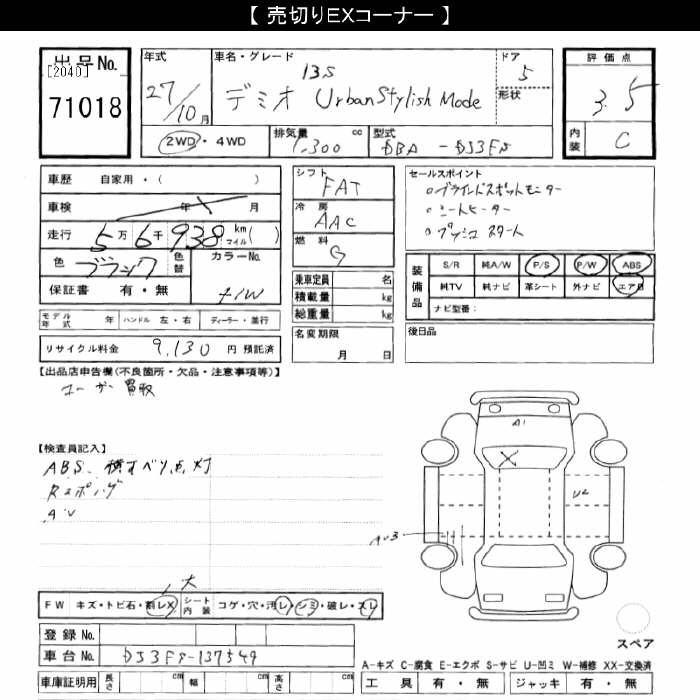 【 売切りEXコーナー 】
出品No.
[2040]
71018
年式
27/10月
車名・グレード
13S
デミオ UrbanStylish Mode
ドア
5
形状
2WD・4WD
排気量 1,300 cc
型式 DBA - DJ3FS
評価点
3.5
内装
C
車歴 自家用・( )
車検 年 月
走行 5万6千938 km マイル( )
色 ブラック 色替
カラーNo.
保証書 有・無
モデル年式 年 ハンドル 左・右 ディーラー・並行
リサイクル料金 9,130 円 預託済
シフト
FAT
冷房
AAC
燃料
G
乗車定員 名
積載量 kg
総重量 kg
名変期限
月 日
セールスポイント
○ブラインドスポットモニター
○シートヒーター
○プッシュスタート
装備品
S/R 純A/W P/S P/W ABS
純TV 純ナビ 革シート 外ナビ エアB
ナビ型番:
後日品
【出品店申告欄(不良箇所・欠品・注意事項等)】
ユーザー買取
【検査員記入】
ABS、横すべり点灯
AU
A1
X
U2
AU3
大
FW キズ・トビ石・割レX シート内装 コゲ・穴・汚レ・シミ・破レ・スレ
登録No.
車台No. DJ3FS-137549
車庫証明用 長さ cm 幅 cm 高さ cm
スペア
A-キズ C-腐食 E-エクボ S-サビ U-凹ミ W-補修 XX-交換済
工具 有・無 ジャッキ 有・無